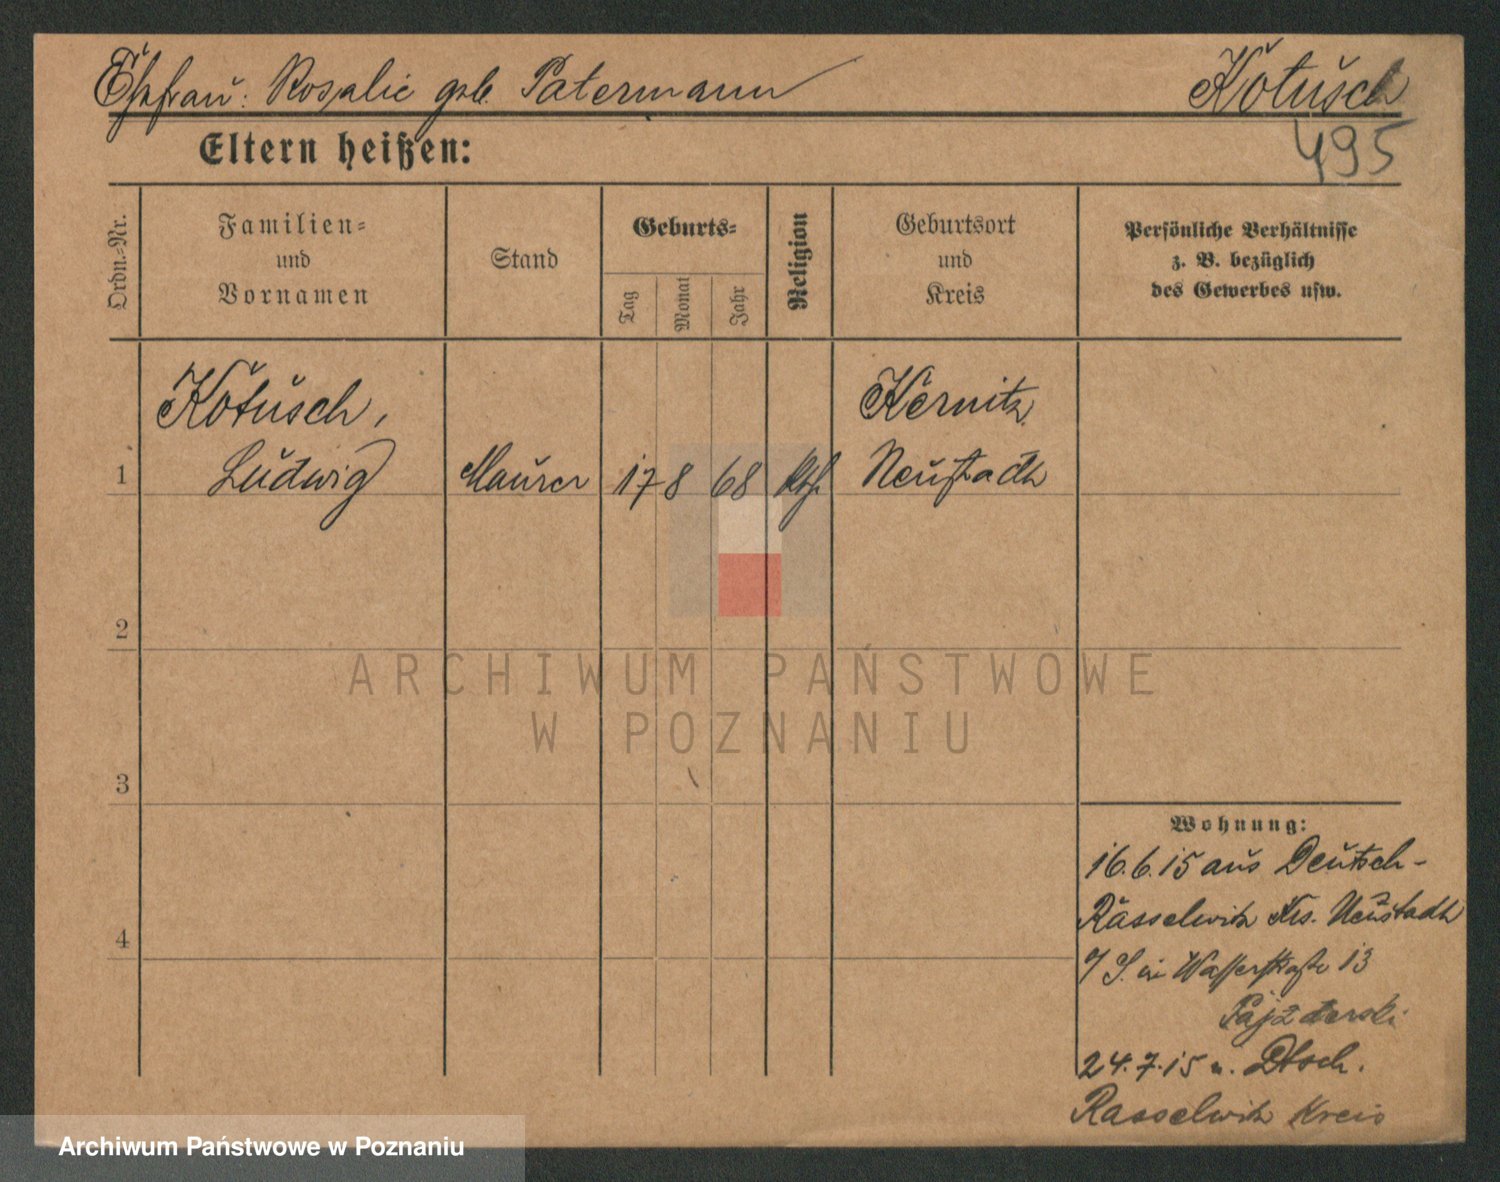 Ehefrau: Rosalie geb. Patermann Kotusch
495
Eltern heißen:
Ordn.-Nr.
Familien-
und
Vornamen
Stand
Geburts-
Tag
Monat
Jahr
Religion
Geburtsort
und
Kreis
Persönliche Verhältnisse
z. B. bezüglich
des Gewerbes usw.
Kotusch,
Kernitz
1 Ludwig Maurer 17 8 68 kth. Neustadt
2
ARCHIWUM PAŃSTWOWE
W POZNANIU
3
Wohnung:
16.6.15 aus Deutsch-
Rasselwitz Krs. Neustadt
4
O/S. in Wasserstraße 13
Pajzderski
24.7.15 n. Dtsch.
Rasselwitz Kreis
Archiwum Państwowe w Poznaniu